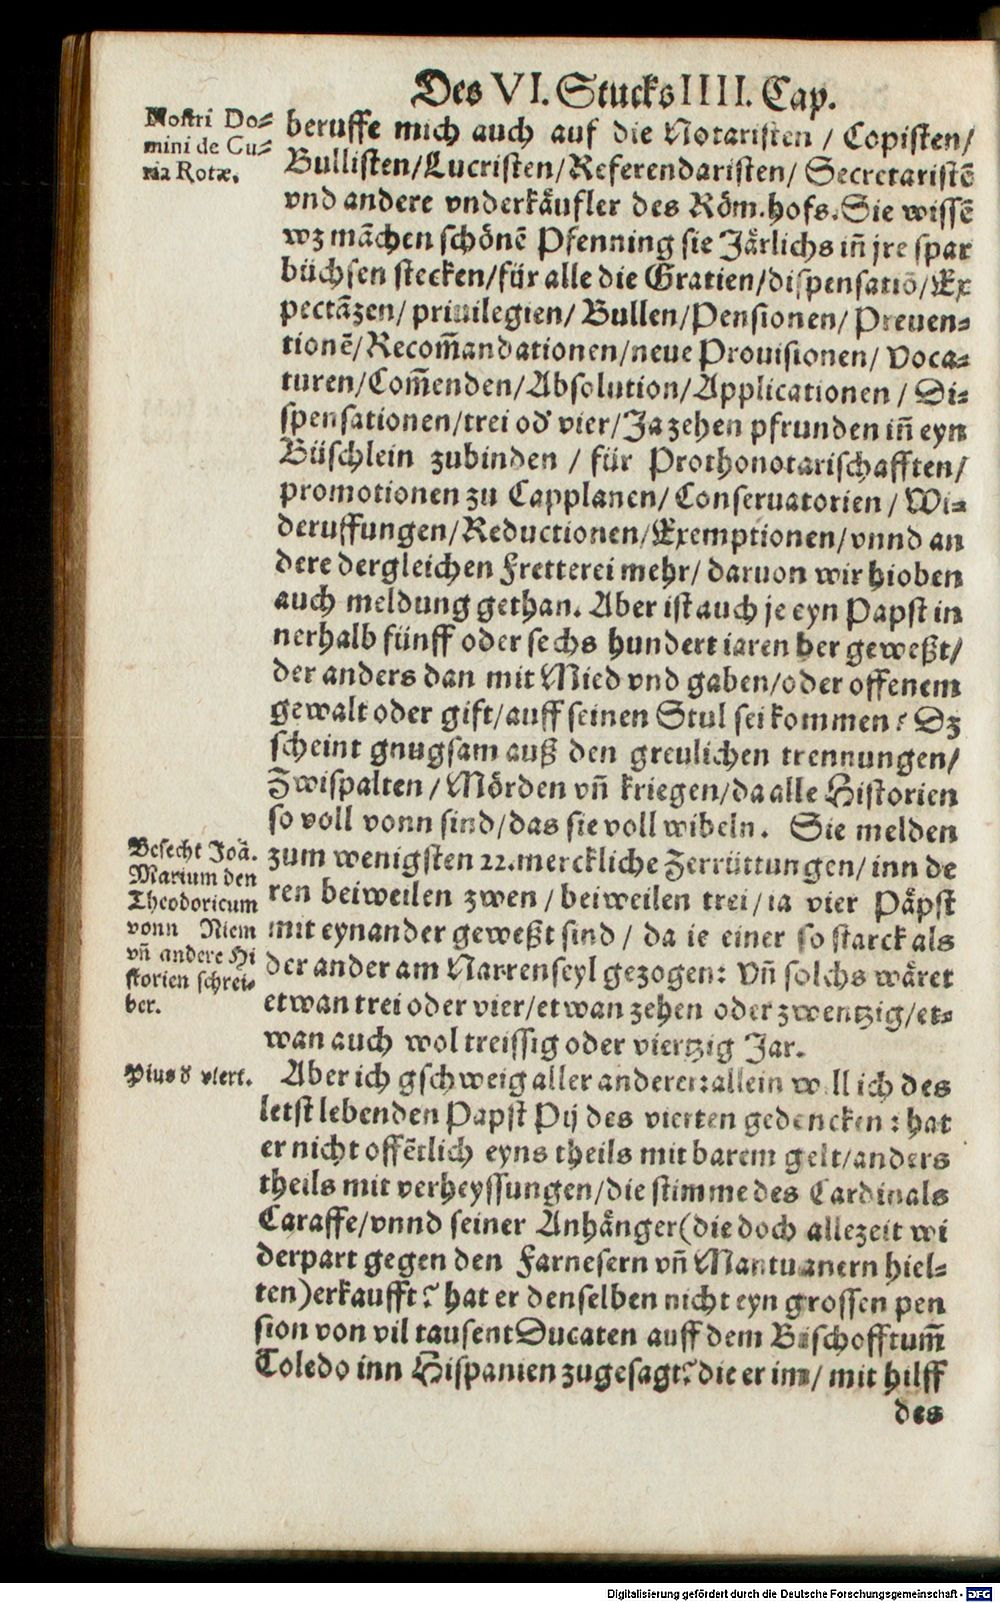 Des VI. Stucks IIII. Cap.
Nostri Do⸗
mini de Cu⸗
ria Rotæ.
beruffe mich auch auf die Notaristen / Copisten/
Bullisten/Lucristen/Referendaristen/ Secretaristẽ
vnd andere vnderkäufler des Röm.hofs. Sie wissẽ
wz mãchen schönẽ Pfenning sie Järlichs iñ jre spar
büchsen stecken/für alle die Gratien/dispensatiõ/Ex
pectãzen/ priuilegien/ Bullen/Pensionen/ Preuen⸗
tionẽ/Recom̃andationen/neue Prouisionen/ Voca⸗
turen/Com̃enden/Absolution/Applicationen / Di⸗
spensationen/trei od̕ vier/Ja zehen pfrunden iñ eyn
Büschlein zubinden / für Prothonotarischafften/
promotionen zu Capplanen/ Conseruatorien / Wi⸗
deruffungen/Reductionen/Exemptionen/vnnd an
dere dergleichen Fretterei mehr/ daruon wir hioben
auch meldung gethan. Aber ist auch je eyn Papst in
nerhalb fünff oder sechs hundert iaren her geweßt/
der anders dan mit Mied vnd gaben/oder offenem
gewalt oder gift/auff seinen Stul sei kommen? Dz
scheint gnugsam auß den greulichen trennungen/
Zwispalten / Mörden vñ kriegen/da alle Historien
so voll vonn sind/das sie voll wibeln. Sie melden
Besecht Joã.
Marium den
Theodoricum
vonn Niem
vñ andere Hi
storien schrei⸗
ber.
zum wenigsten 22.merckliche Zerrüttungen/ inn de
ren beiweilen zwen / beiweilen trei/ ia vier Päpst
mit eynander geweßt sind / da ie einer so starck als
der ander am Narrenseyl gezogen: Vñ solchs wäret
etwan trei oder vier/etwan zehen oder zwentzig/et⸗
wan auch wol treissig oder viertzig Jar.
Pius d̕ viert.
Aber ich gschweig aller anderer: allein will ich des
letst lebenden Papst Pij des vierten gedencken: hat
er nicht offẽtlich eyns theils mit barem gelt/anders
theils mit verheyssungen/die stimme des Cardinals
Caraffe/vnnd seiner Anhänger(die doch allezeit wi
derpart gegen den Farnesern vñ Mantuanern hiel⸗
ten)erkaufft? hat er denselben nicht eyn grossen pen
sion von vil tausent Ducaten auff dem Bischofftum̃
Toledo inn Hispanien zugesagt? die er im/ mit hilff
des
Digitalisierung gefördert durch die Deutsche Forschungsgemeinschaft - DFG